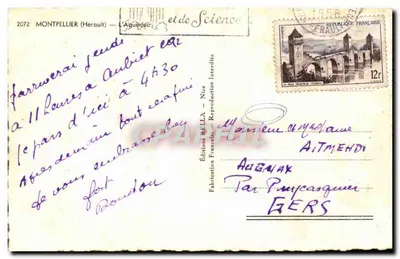 2072 MONTPELLIER (Hérault) — L'Aqueduc
et de Science
1956
HERAULT
REPUBLIQUE FRANÇAISE
12F
J'arriverai jeudi
à 11 heures à Aubiet car
je pars d'ici à 4h30
Après demain tout sera fini
Je vous embrasse bien
fort
Editions RELLA - Nice
Fabrication Française - Reproduction Interdite
Monsieur et Madame
AUGNAX
Par Puycasquier
GERS
delcampe